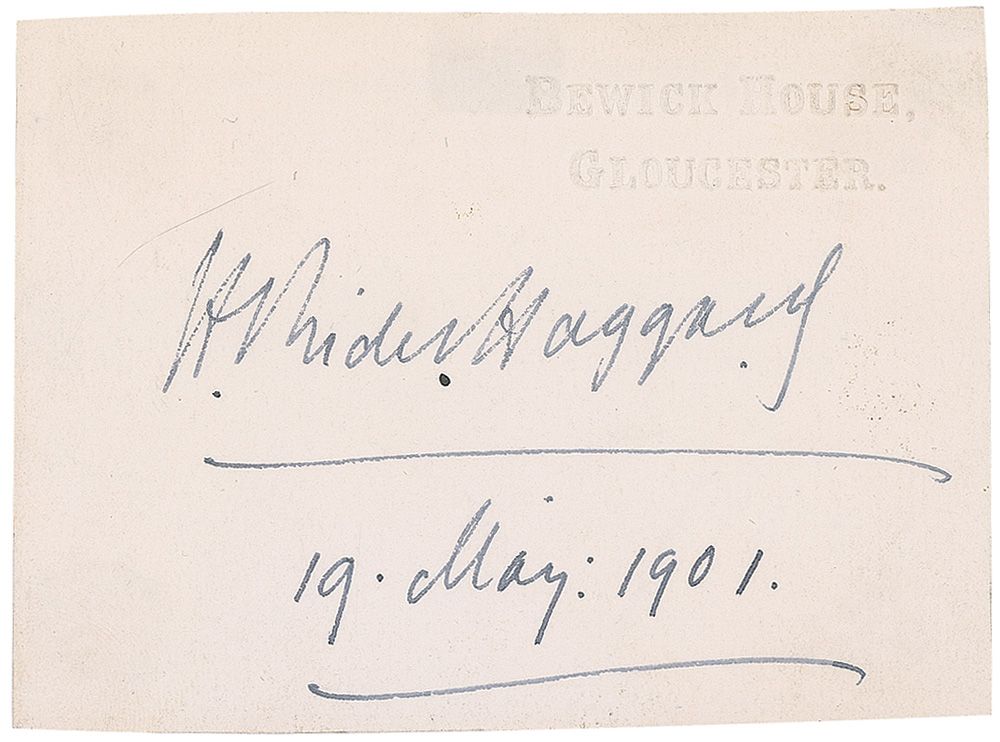 BEWICK HOUSE,
GLOUCESTER.
H. Rider Haggard
19. May: 1901.